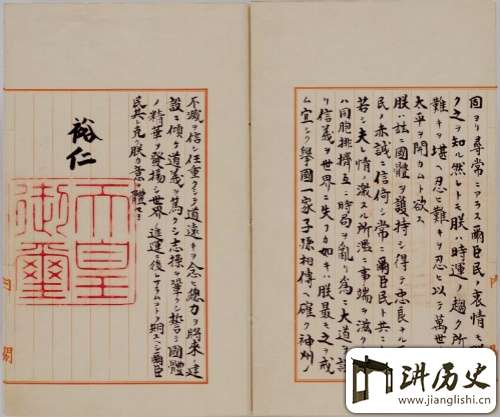 固ヨリ尋常ニアラス爾臣民ノ衷情モ
ク之ヲ知ル然レトモ朕ハ時運ノ趨ク所
難キヲ堪ヘ忍ヒ難キヲ忍ヒ以テ萬世
太平ヲ開カムト欲ス
朕ハ茲ニ國體ヲ護持シ得テ忠良ナル
民ノ赤誠ニ信倚シ常ニ爾臣民ト共ニ
若シ夫レ情ノ激スル所濫ニ事端ヲ滋ク
ハ同胞排擠互ニ時局ヲ亂リ爲ニ大道ヲ誤
リ信義ヲ世界ニ失フカ如キハ朕最モ之ヲ戒
ム宜シク擧國一家子孫相傳ヘ確ク神州ノ
不滅ヲ信シ任重クシテ道遠キヲ念ヒ總力ヲ將來ノ建
設ニ傾ケ道義ヲ篤クシ志操ヲ鞏クシ誓テ國體
ノ精華ヲ發揚シ世界ノ進運ニ後レサラムコトヲ期スヘシ爾臣
民其レ克ク朕カ意ヲ體セヨ
裕仁
天皇
御璽
閣
讲历史
www.jianglishi.cn